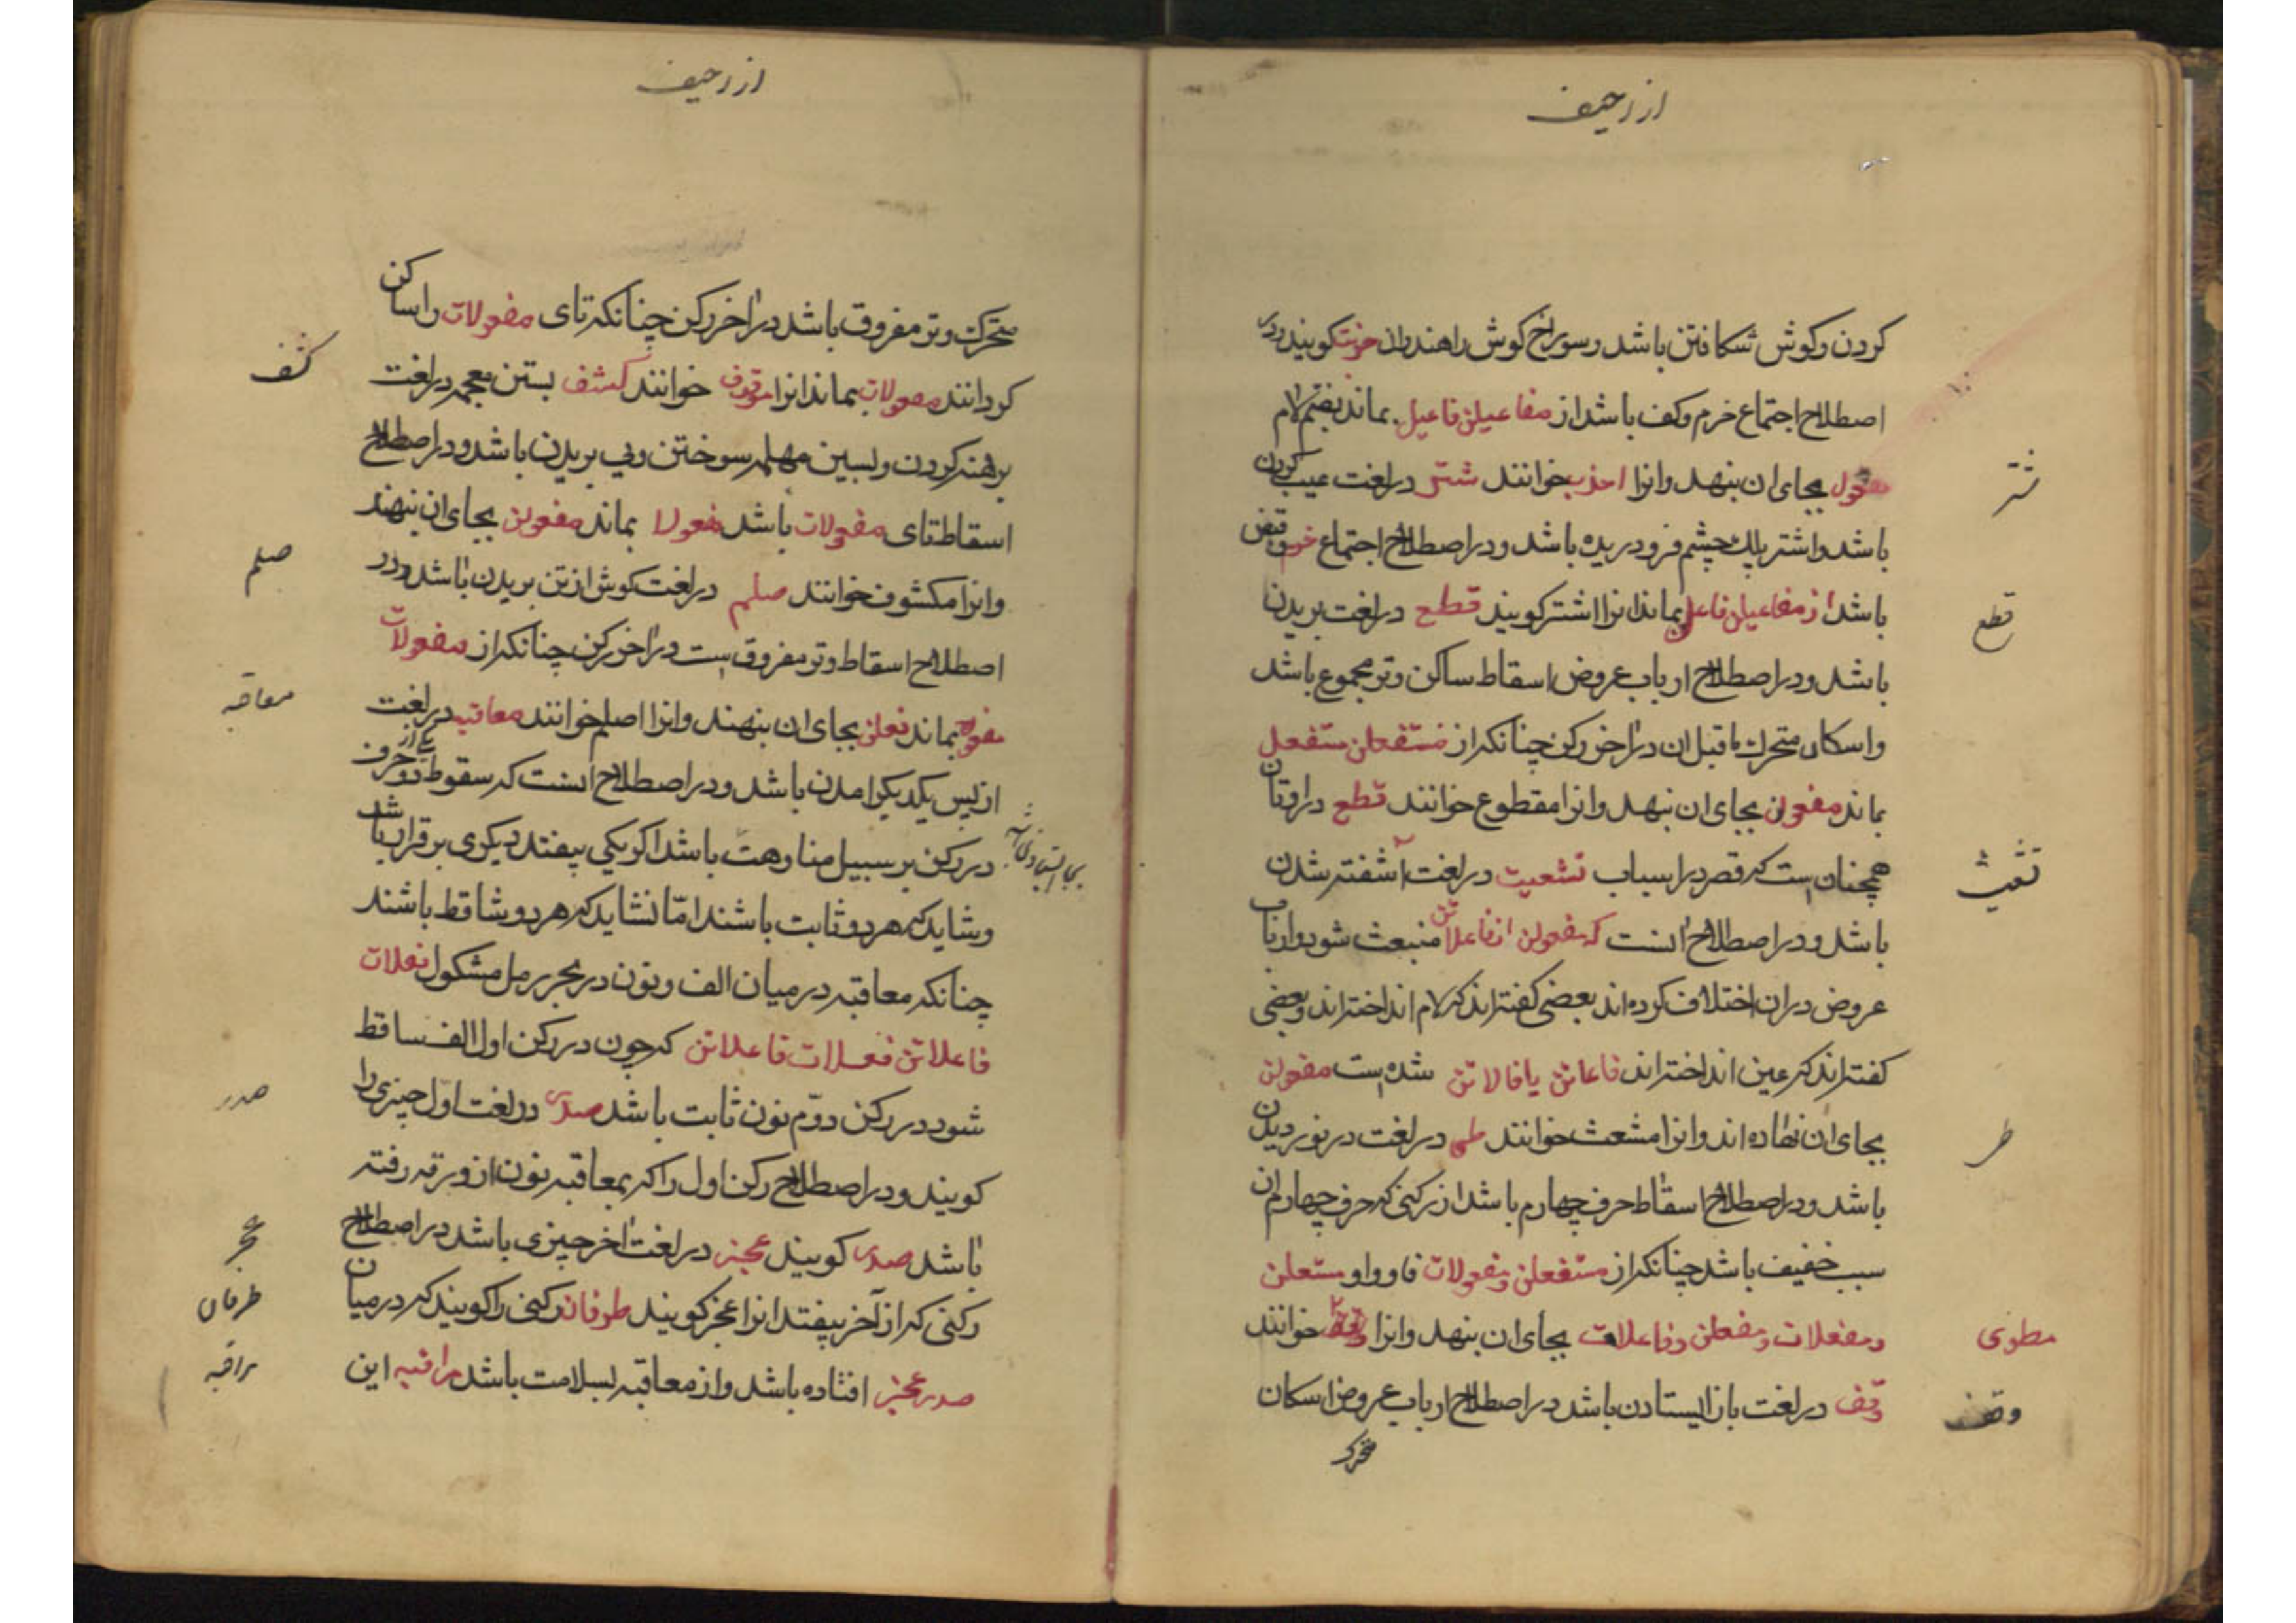 از زحیف
کردن و کوش شکافتن باشد و سوراخ کوش راهندوان خربت کویند و در
اصطلاح اجتماع خرم و کف باشد از مفاعیلن فاعیل بماند بضم لام
مفعول بجای ان بنهد و انرا اخرب خوانند شتر در لغت عیب کردن
شتر
باشد و اشتر پلک چشم فرو دریده باشد و در اصطلاح اجتماع خرم و قبض
باشد از مفاعیلن فاعلن بماند انرا اشتر کویند قطع در لغت بریدن
قطع
باشد و در اصطلاح ارباب عروض اسقاط ساکن وتد مجموع باشد
و اسکان متحرک ماقبل ان در اخر رکن چنانکه از مستفعلن مستفعل
بماند مفعولن بجای ان نهد و انرا مقطوع خوانند قطع در اوتان
همچنان است که قصر در اسباب تشعیث در لغت آشفته شدن
تشعیث
باشد و در اصطلاح انست که مفعولن از فاعلاتن منبعث شود و ارباب
عروض در ان اختلاف کرده اند بعضی کفته اند که لام انداخته اند و بعضی
کفته اند که عین انداخته اند فاعاتن یا فالاتن شده است مفعولن
بجای ان نهاده اند و انرا مشعث خوانند طی در لغت در نوردیدن
طی
باشد و در اصطلاح اسقاط حرف چهارم باشد از رکنی که حرف چهارم ان
سبب خفیف باشد چنانکه از مستفعلن و مفعولات فا و واو مستعلن
و مفعلات و مفتعلن و فاعلات بجای ان بنهد و انرا خوانند
مطوی
وقف در لغت باز ایستادن باشد در اصطلاح ارباب عروض اسکان
وقف
متحرک
از زحیف
متحرک وتد مفروق باشد در اخر رکن چنانکه تای مفعولات را ساکن
کردانند مفعولات بماند انرا موقوف خوانند کشف بستن معجمه در لغت
کشف
برهنه کردن و لسین مهمله سوختن و پی بریدن باشد و در اصطلاح
اسقاط تای مفعولات باشد مفعولا بماند مفعولن بجای ان نهند
و انرا مکشوف خوانند صلم در لغت کوش از تن بریدن باشد و در
صلم
اصطلاح اسقاط وتد مفروق است در اخر رکن چنانکه از مفعولات
مفعو بماند فعلن بجای ان بنهند و انرا اصلم خوانند معاقبه در لغت
معاقبه
از پس یکدیکر امدن باشد و در اصطلاح انست که سقوط یکی از دو حرف
در رکن بر سبیل مناوهت باشد اکر یکی بیفتد دیکری بر قرار باشد
و شاید که هر دو ثابت باشند اما نشاید که هر دو شاقط باشند
چنانکه معاقبه در میان الف و نون در بحر رمل مشکول فعلات
فاعلاتن فعلات فاعلاتن که چون در رکن اول الف ساقط
شود در رکن دوم نون ثابت باشد صدر در لغت اول چیزی را
صدر
کویند و در اصطلاح رکن اول را که بمعاقبه نون از و برقه رفته
باشد صدر کویند عجز در لغت اخر چیزی باشد در اصطلاح
عجز
رکنی که از آخر بیفتد انرا عجز کویند طرفان رکنی را کویند که در میان
طرفان
صدر عجز افتاده باشد و از معاقبه بسلامت باشد مراقبه این
مراقبه